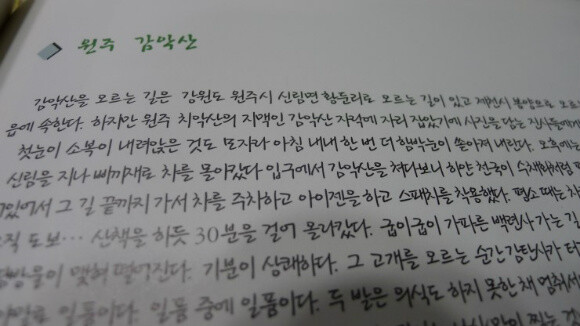 원주 감악산
감악산을 오르는 길은 강원도 원주시 신림면 황둔리로 오르는 길이 있고 제천시 봉양으로 오르
읍에 속한다. 하지만 원주 치악산의 지맥인 감악산 자락에 자리 잡았기에 사진을 담는 진사들에게
첫눈이 소복이 내려앉은 것도 모자라 아침 내내 한 번 더 함박눈이 쏟아져 내린다. 오후에는
신림을 지나 싸리재로 차를 몰아갔다 입구에서 감악산을 쳐다보니 하얀 천국이 수채화처럼
있어서 그 길 끝까지 가서 차를 주차하고 아이젠을 하고 스패치를 착용했다. 평소 때는 차
직 도보… 산책을 하듯 30분을 걸어 올라갔다. 굽이굽이 가파른 백련사 가는 길
방울이 맺혀 떨어진다. 기분이 상쾌하다. 그 고개를 오르는 순간 감탄사가 터
일품이다. 일품 중에 일품이다. 두 발은 의식도 하지 못한 채 멈춰세